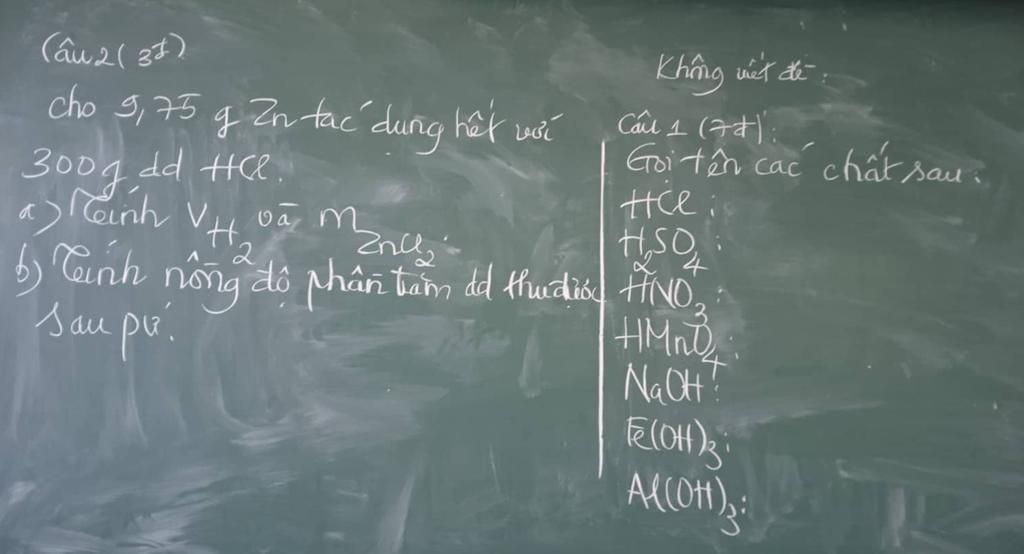 Câu 2 (3đ)
cho 9,75 g Zn tác dụng hết với
300g dd HCl.
a) Tính V_H₂ và m_ZnCl₂.
b) Tính nồng độ phần trăm dd thu được
sau pứ.
Không viết đề:
Câu 1 (7đ):
Gọi tên các chất sau:
HCl:
H₂SO₄:
HNO₃:
HMnO₄:
NaOH:
Fe(OH)₃:
Al(OH)₃: